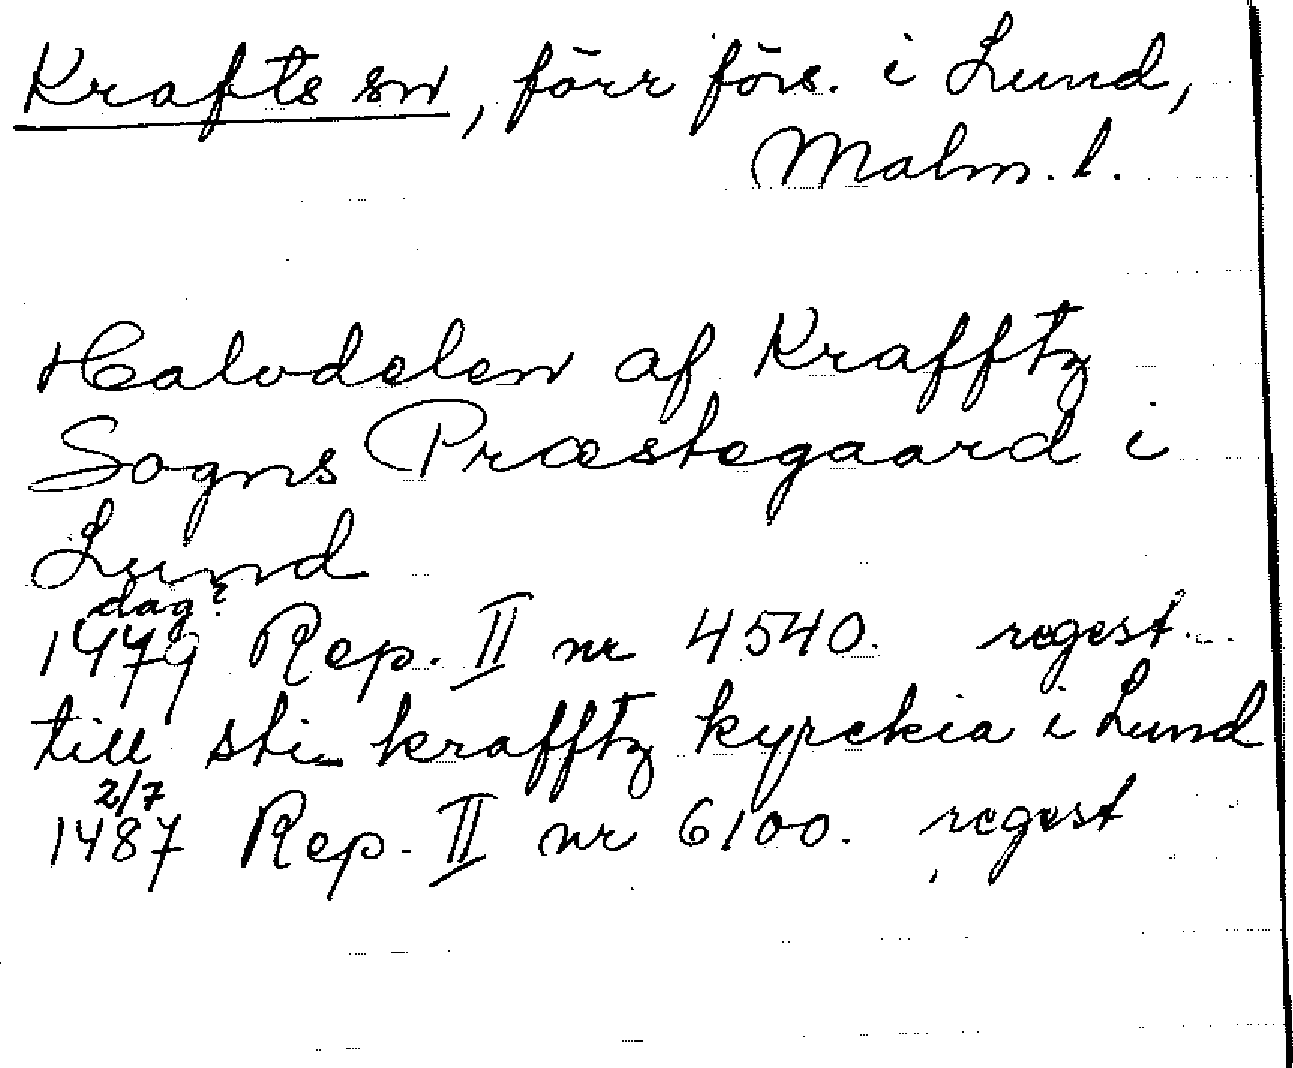 Krafts sn, förr förs. i Lund,
Malm. l.
Halvdelen af Krafftz
Sogns Præstegaard i
Lund
dag?
1479 Rep. II nr 4540. regest
till sti krafftz kyrckia i Lund
2/7
1487 Rep. II nr 6100. regest